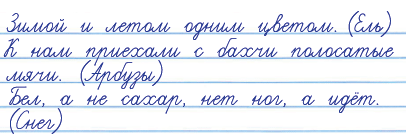 Зимой и летом одним цветом. (Ель)
К нам приехали с бахчи полосатые
мячи. (Арбузы)
Бел, а не сахар, нет ног, а идёт.
(Снег)